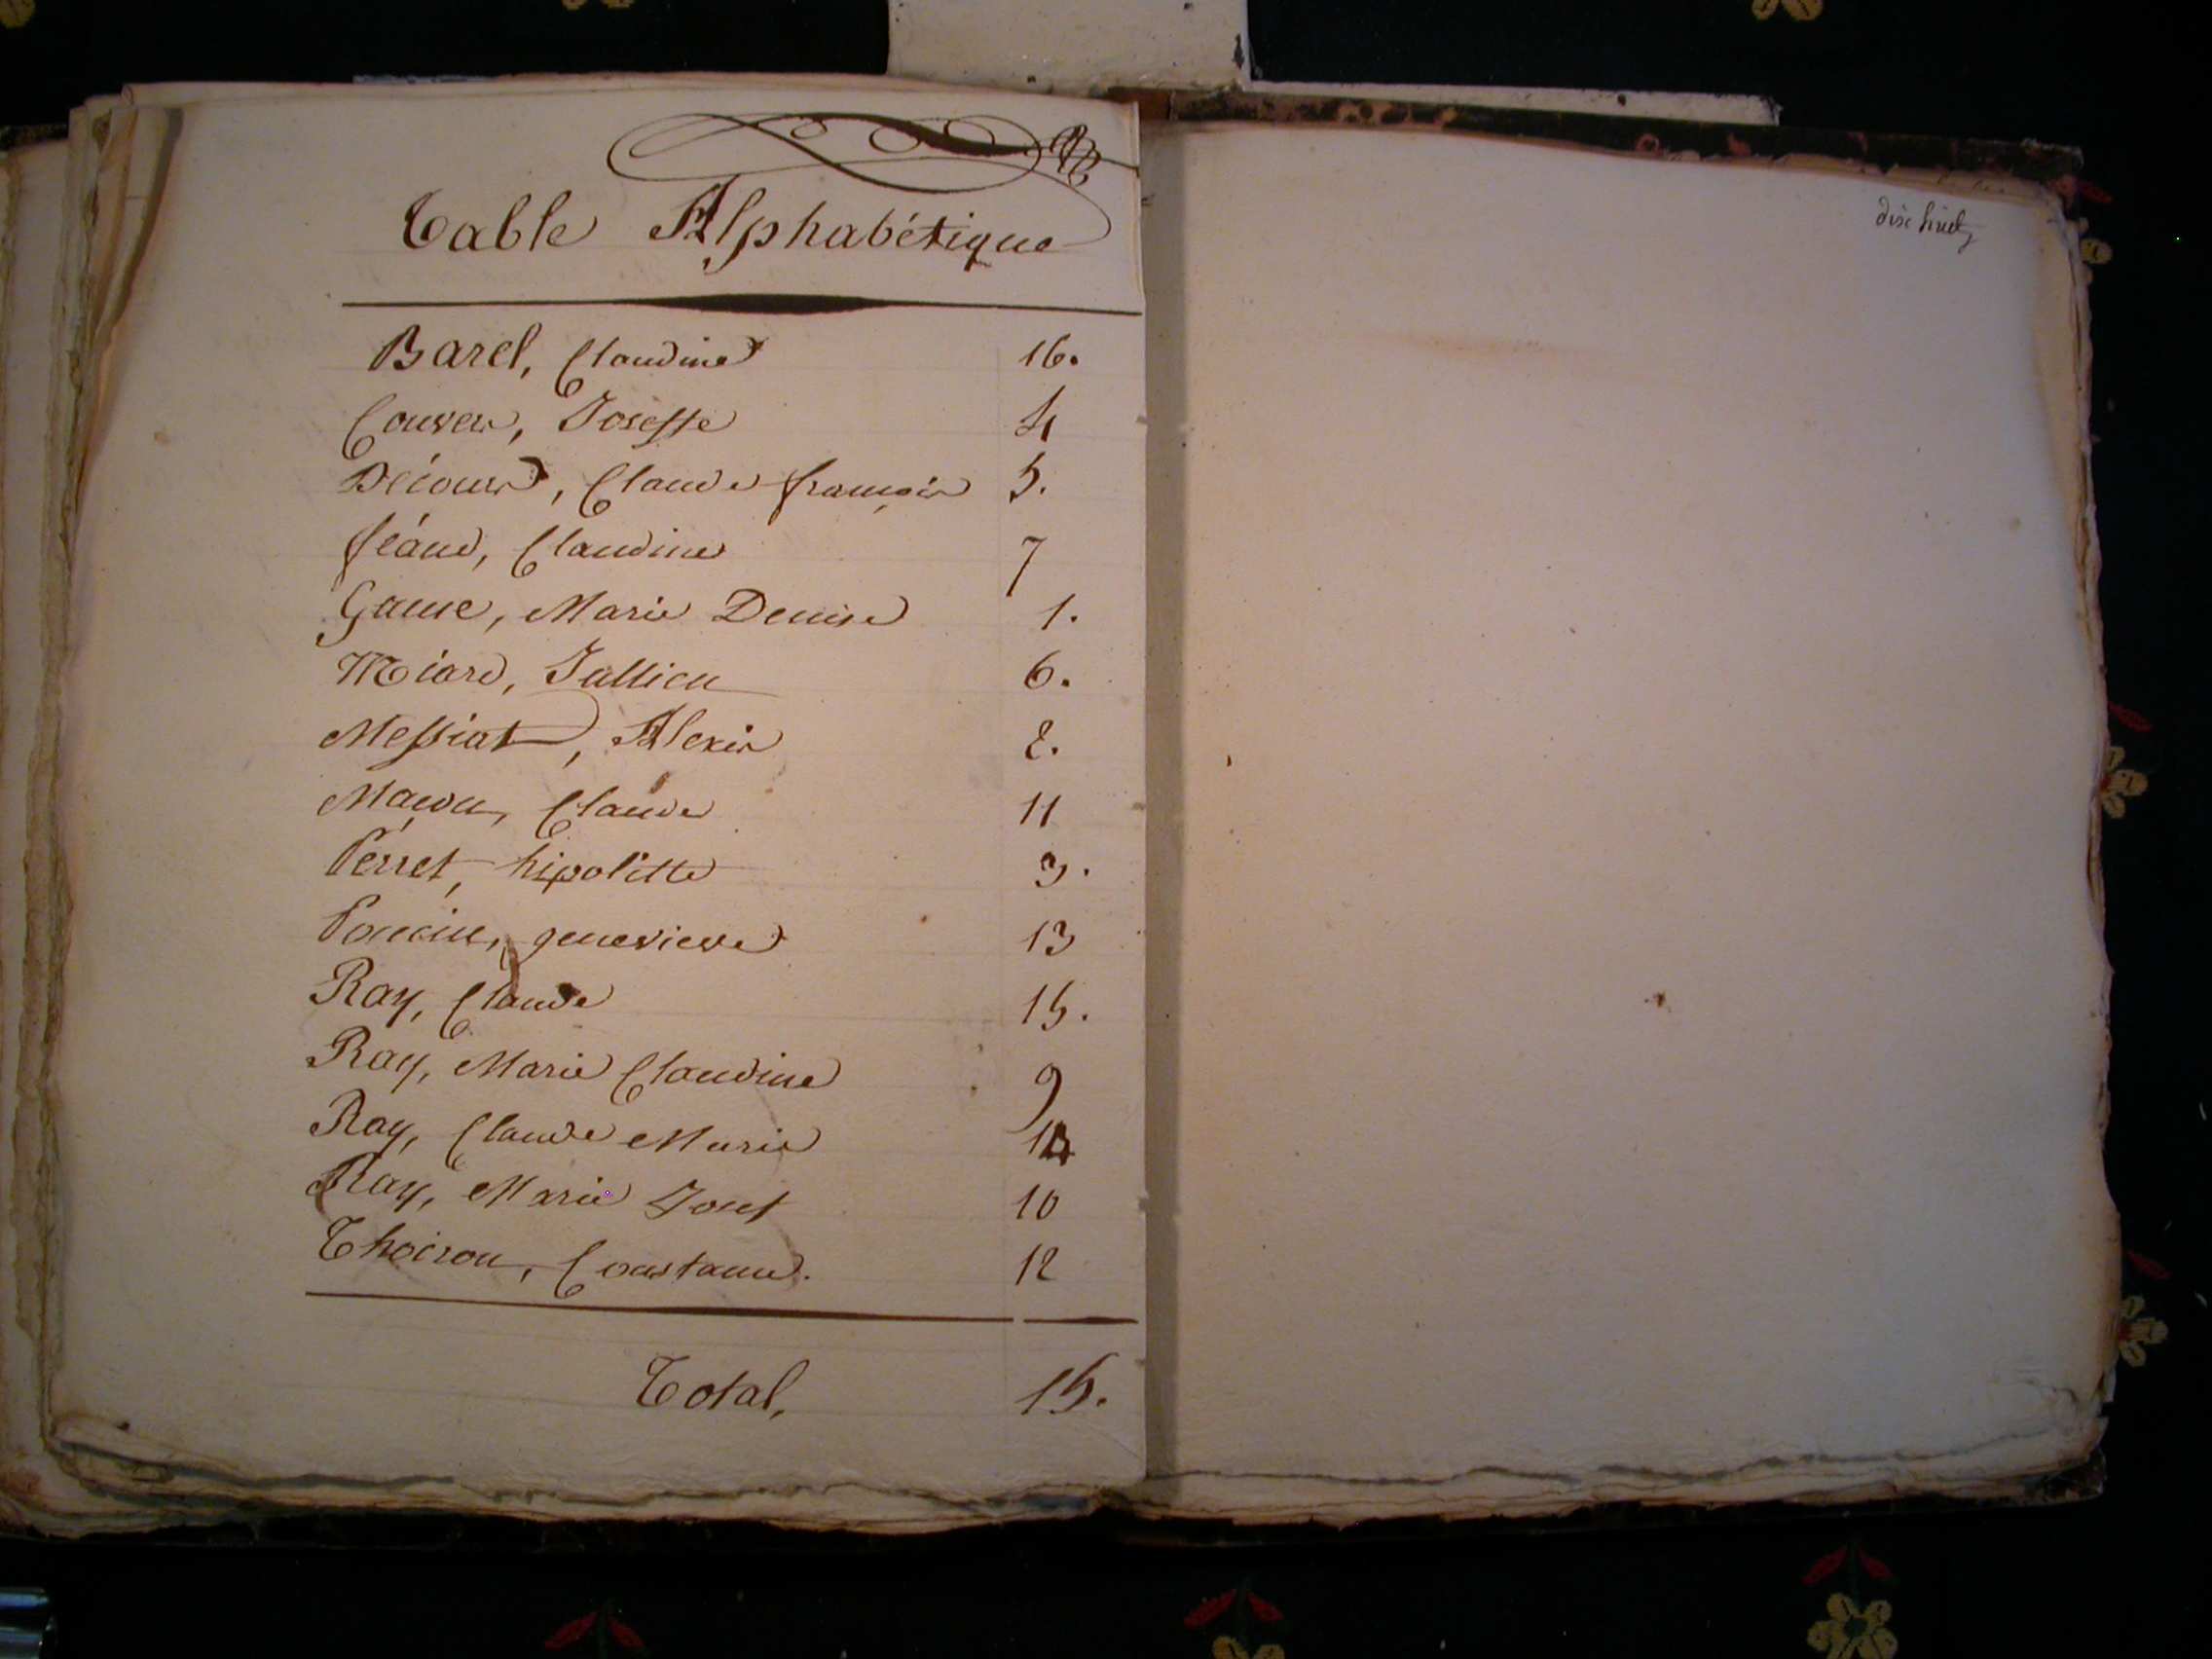 Table Alphabétique
Barel, Claudine 16.
Couver, Joseffe 4
Décour, Claude françois 5.
féaud, Claudine 7
Game, Marie Denise 1.
Miard, Jullien 6.
Messiat, Alexis 2.
Claude 11
Perret, hipolitte 3.
Poncin, genevieve 13
Ray, Claude 15.
Ray, Marie Claudine 9
Ray, Claude Marie 14
Ray, Marie Joset 10
Thoiron, Constance. 12
Total, 15.
dix huit